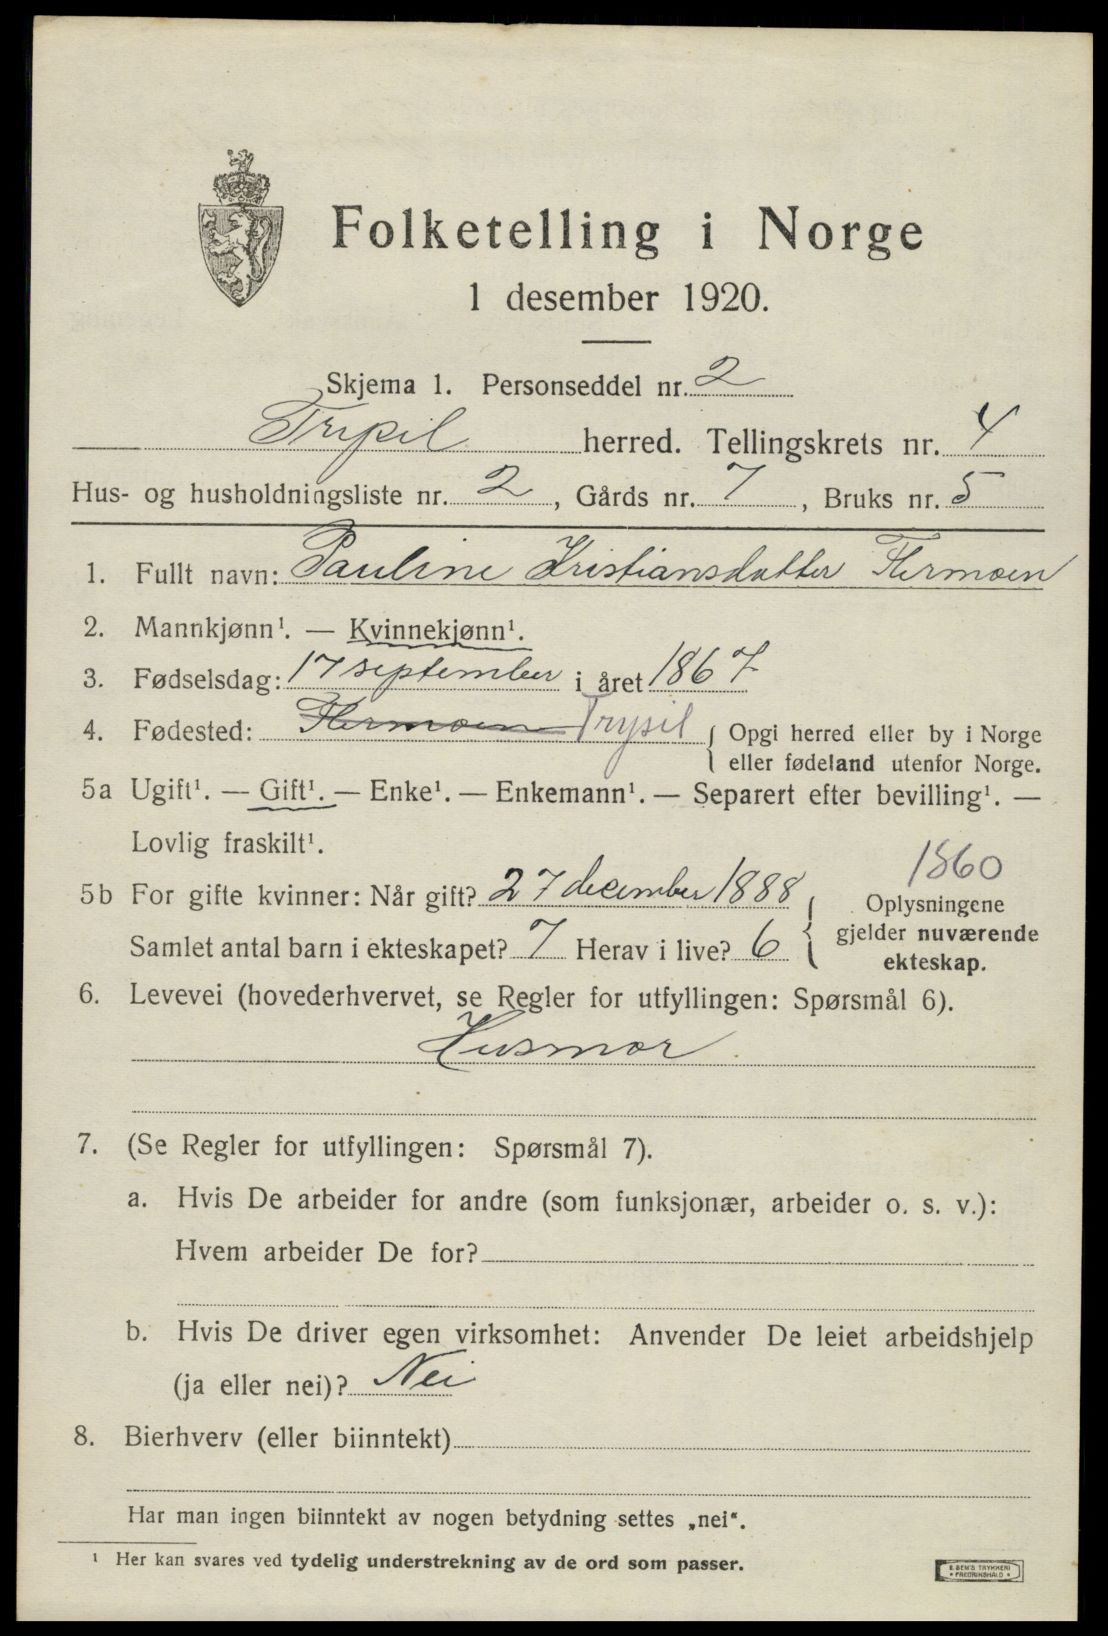 Folketelling i Norge
1 desember 1920.
Skjema 1. Personseddel nr. 2
Trysil herred. Tellingskrets nr. 4
Hus- og husholdningsliste nr. 2, Gårds nr. 7, Bruks nr. 5
1. Fullt navn: Pauline Kristiansdatter Flermoen
2. Mannkjønn¹. — Kvinnekjønn¹.
3. Fødselsdag: 17 september i året 1867
4. Fødested: Flermoen Trysil { Opgi herred eller by i Norge
eller fødeland utenfor Norge.
5a Ugift¹. — Gift¹. — Enke¹. — Enkemann¹. — Separert efter bevilling¹. —
Lovlig fraskilt¹.
1860
5b For gifte kvinner: Når gift? 27 december 1888 { Oplysningene
gjelder nuværende
Samlet antal barn i ekteskapet? 7 Herav i live? 6
ekteskap.
6. Levevei (hovederhvervet, se Regler for utfyllingen: Spørsmål 6).
Husmor
7. (Se Regler for utfyllingen: Spørsmål 7).
a. Hvis De arbeider for andre (som funksjonær, arbeider o. s. v.):
Hvem arbeider De for?
b. Hvis De driver egen virksomhet: Anvender De leiet arbeidshjelp
(ja eller nei)? Nei
8. Bierhverv (eller biinntekt)
Har man ingen biinntekt av nogen betydning settes „nei“.
¹ Her kan svares ved tydelig understrekning av de ord som passer.
E. SEM'S TRYKKERI
• FREDRIKSHALD •